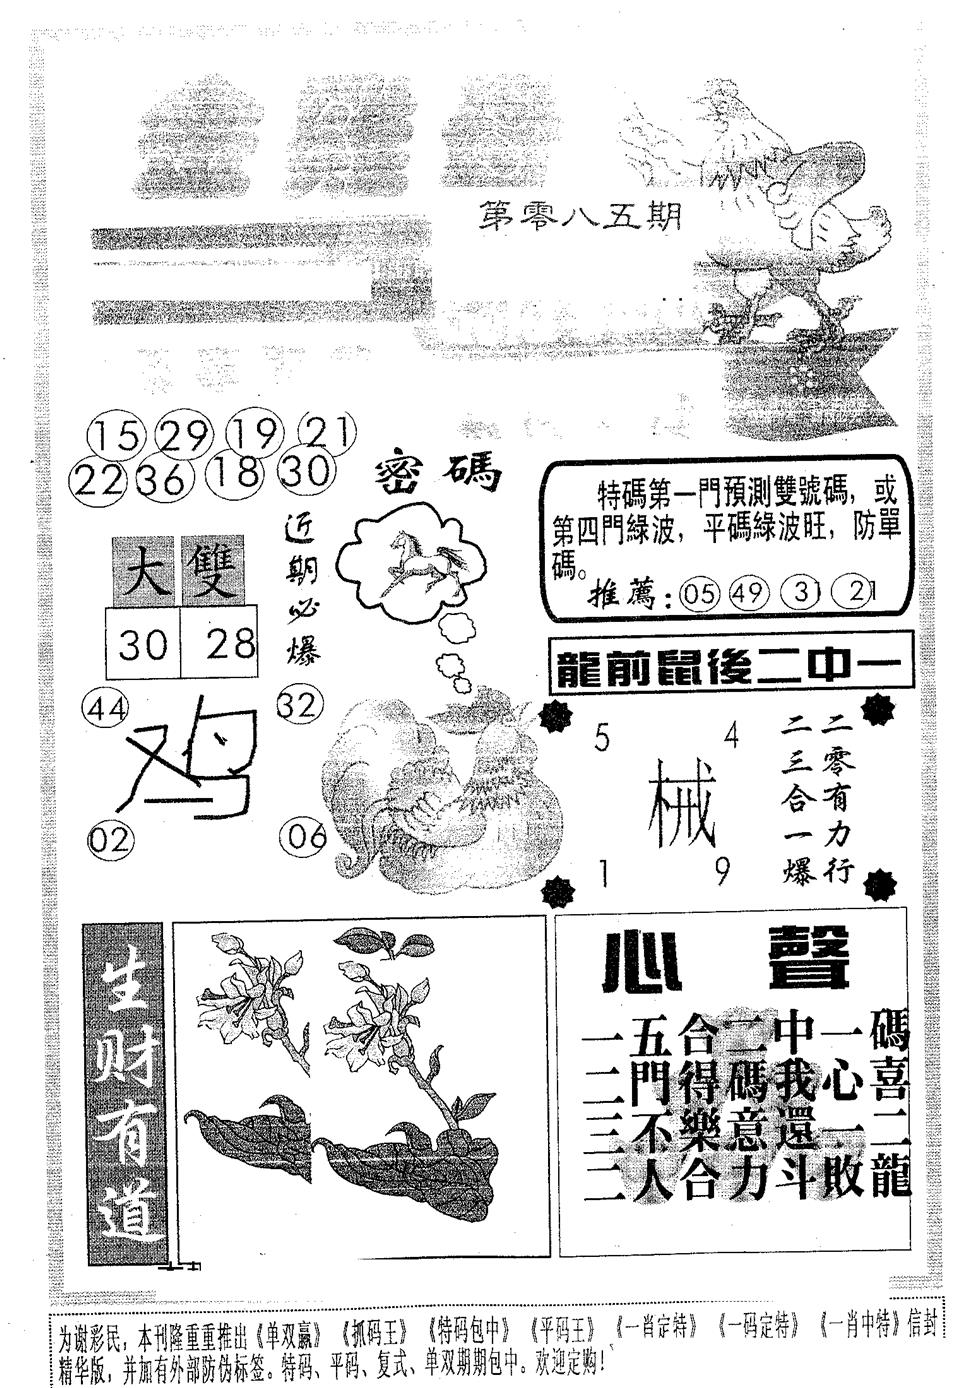 第零八五期
15 29 19 21
22 36 18 30
密碼
近期必爆
大 雙
30 28
特碼第一門預測雙號碼，或
第四門綠波，平碼綠波旺，防單
碼。
推薦：05 49 31 21
龍前鼠後二中一
44 32
鸡
02 06
5 4
械
1 9
二零有力行
二三合一爆
生财有道
心聲
一五合二中一碼
二門得碼我心喜
三不樂意還一二
二人合力斗敗龍
为谢彩民，本刊隆重重推出《单双赢》《抓码王》《特码包中》《平码王》《一肖定特》《一码定特》《一肖中特》信封
精华版，并加有外部防伪标签。特码、平码、复式、单双期期包中。欢迎定购！